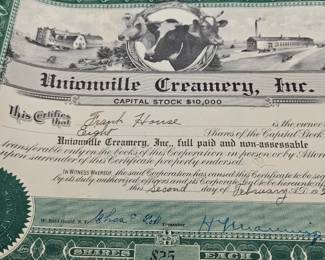 Unionville Creamery, Inc.
CAPITAL STOCK $10,000
This Certifies that Frank House is the owner
Eight Shares of the Capital Stock
Unionville Creamery, Inc., full paid and non-assessable
transferable only on the books of this Corporation in person or by Attorney
upon surrender of this Certificate properly endorsed.
IN WITNESS WHEREOF, the said Corporation has caused this Certificate to be signed
by its duly authorized officers and its Corporate Seal to be hereunto affixed
this Second day of February A.D. 19
SHARES $25 EACH